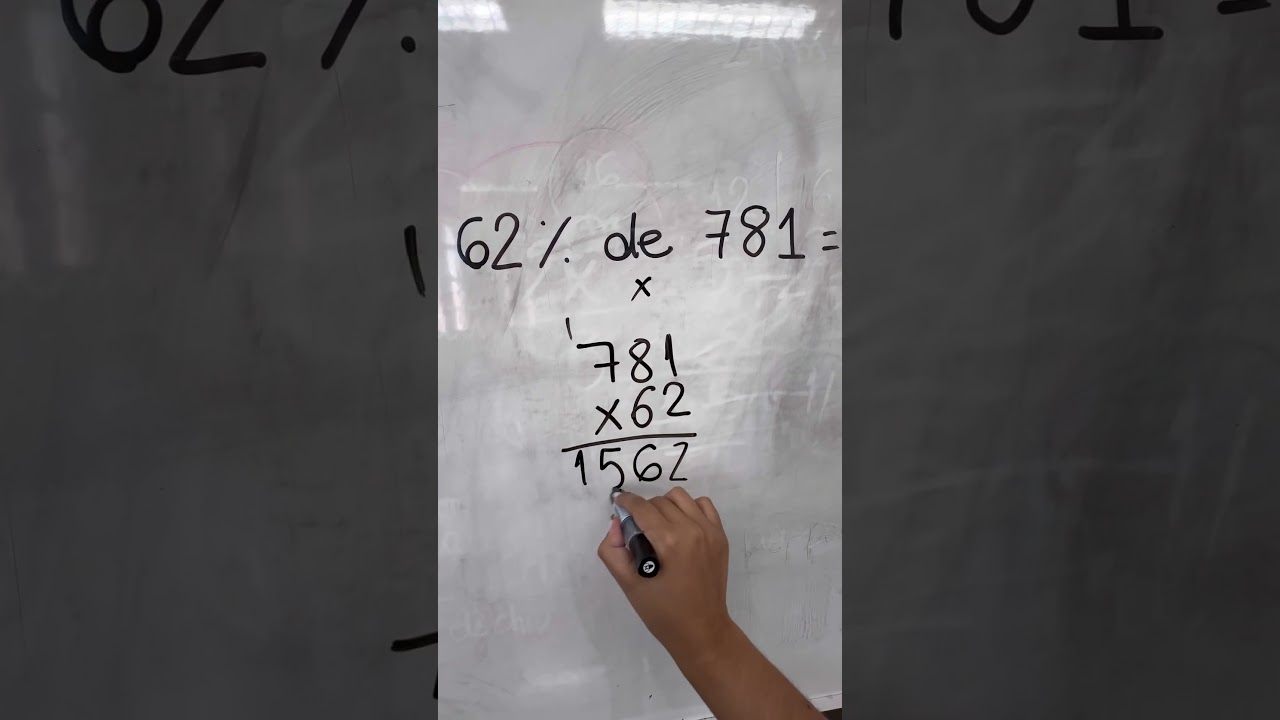 62% de 781 =
x
1
781
x62
1562